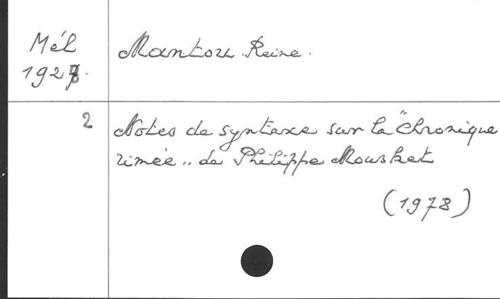 Mél
1927.
Mantou Reine.
2
Notes de syntaxe sur la "Chronique
rimée" de Philippe Mousket
(1978)